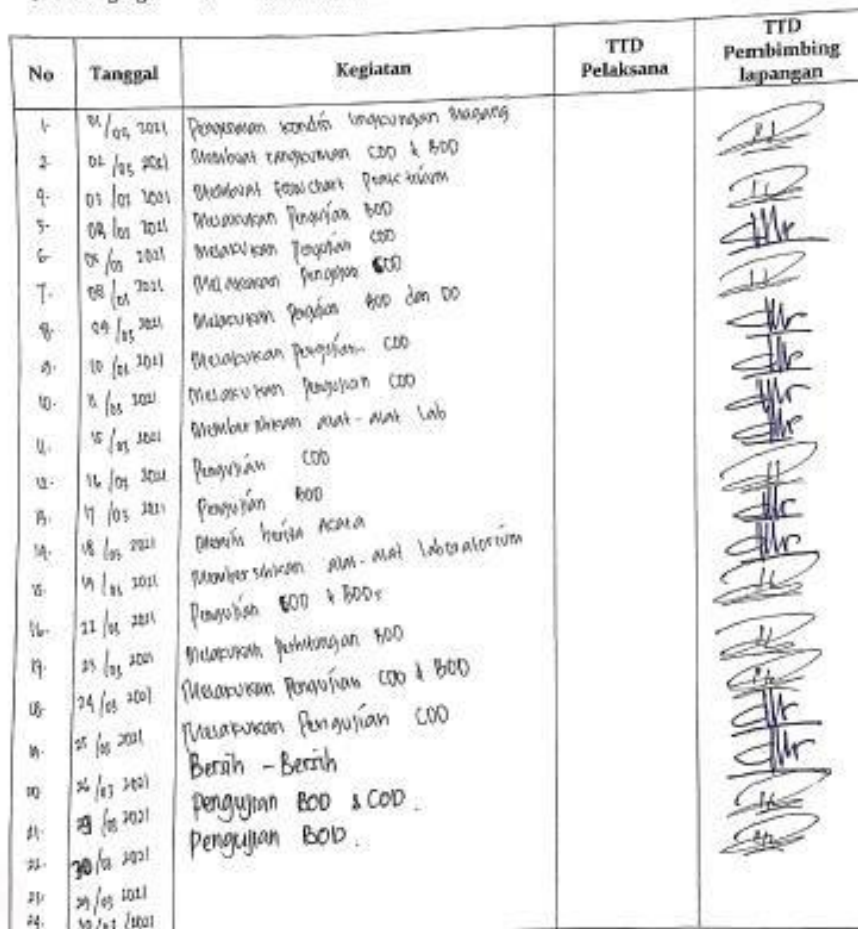 No Tanggal Kegiatan TTD Pelaksana TTD Pembimbing lapangan
1. 01/03 2021 Pengenalan kondisi lingkungan Magang
2. 02/03 2021 Membuat rangkuman COD & BOD
4. 03/03 2021 Membuat flowchart Praktikum
5. 04/03 2021 Melakukan Pengujian BOD
6. 05/03 2021 Melakukan Pengujian COD
7. 08/03 2021 Melakukan Pengujian COD
8. 09/03 2021 Melakukan Pengujian BOD dan DO
9. 10/03 2021 Melakukan Pengujian COD
10. 11/03 2021 Melakukan Pengujian COD
11. 15/03 2021 Membersihkan alat-alat Lab
12. 16/03 2021 Pengujian COD
13. 17/03 2021 Pengujian BOD
14. 18/03 2021 Menulis berita Acara
15. 19/03 2021 Membersihkan alat-alat laboratorium
16. 22/03 2021 Pengujian COD & BOD5
17. 23/03 2021 Melakukan Perhitungan BOD
18. 24/03 2021 Melakukan Pengujian COD & BOD
19. 25/03 2021 Melakukan Pengujian COD
20 26/03 2021 Bersih - Bersih
21. /03 2021 Pengujian BOD & COD.
22. 30/03 2021 Pengujian BOD.
23. 29/03 2021
24. 30/03/2021